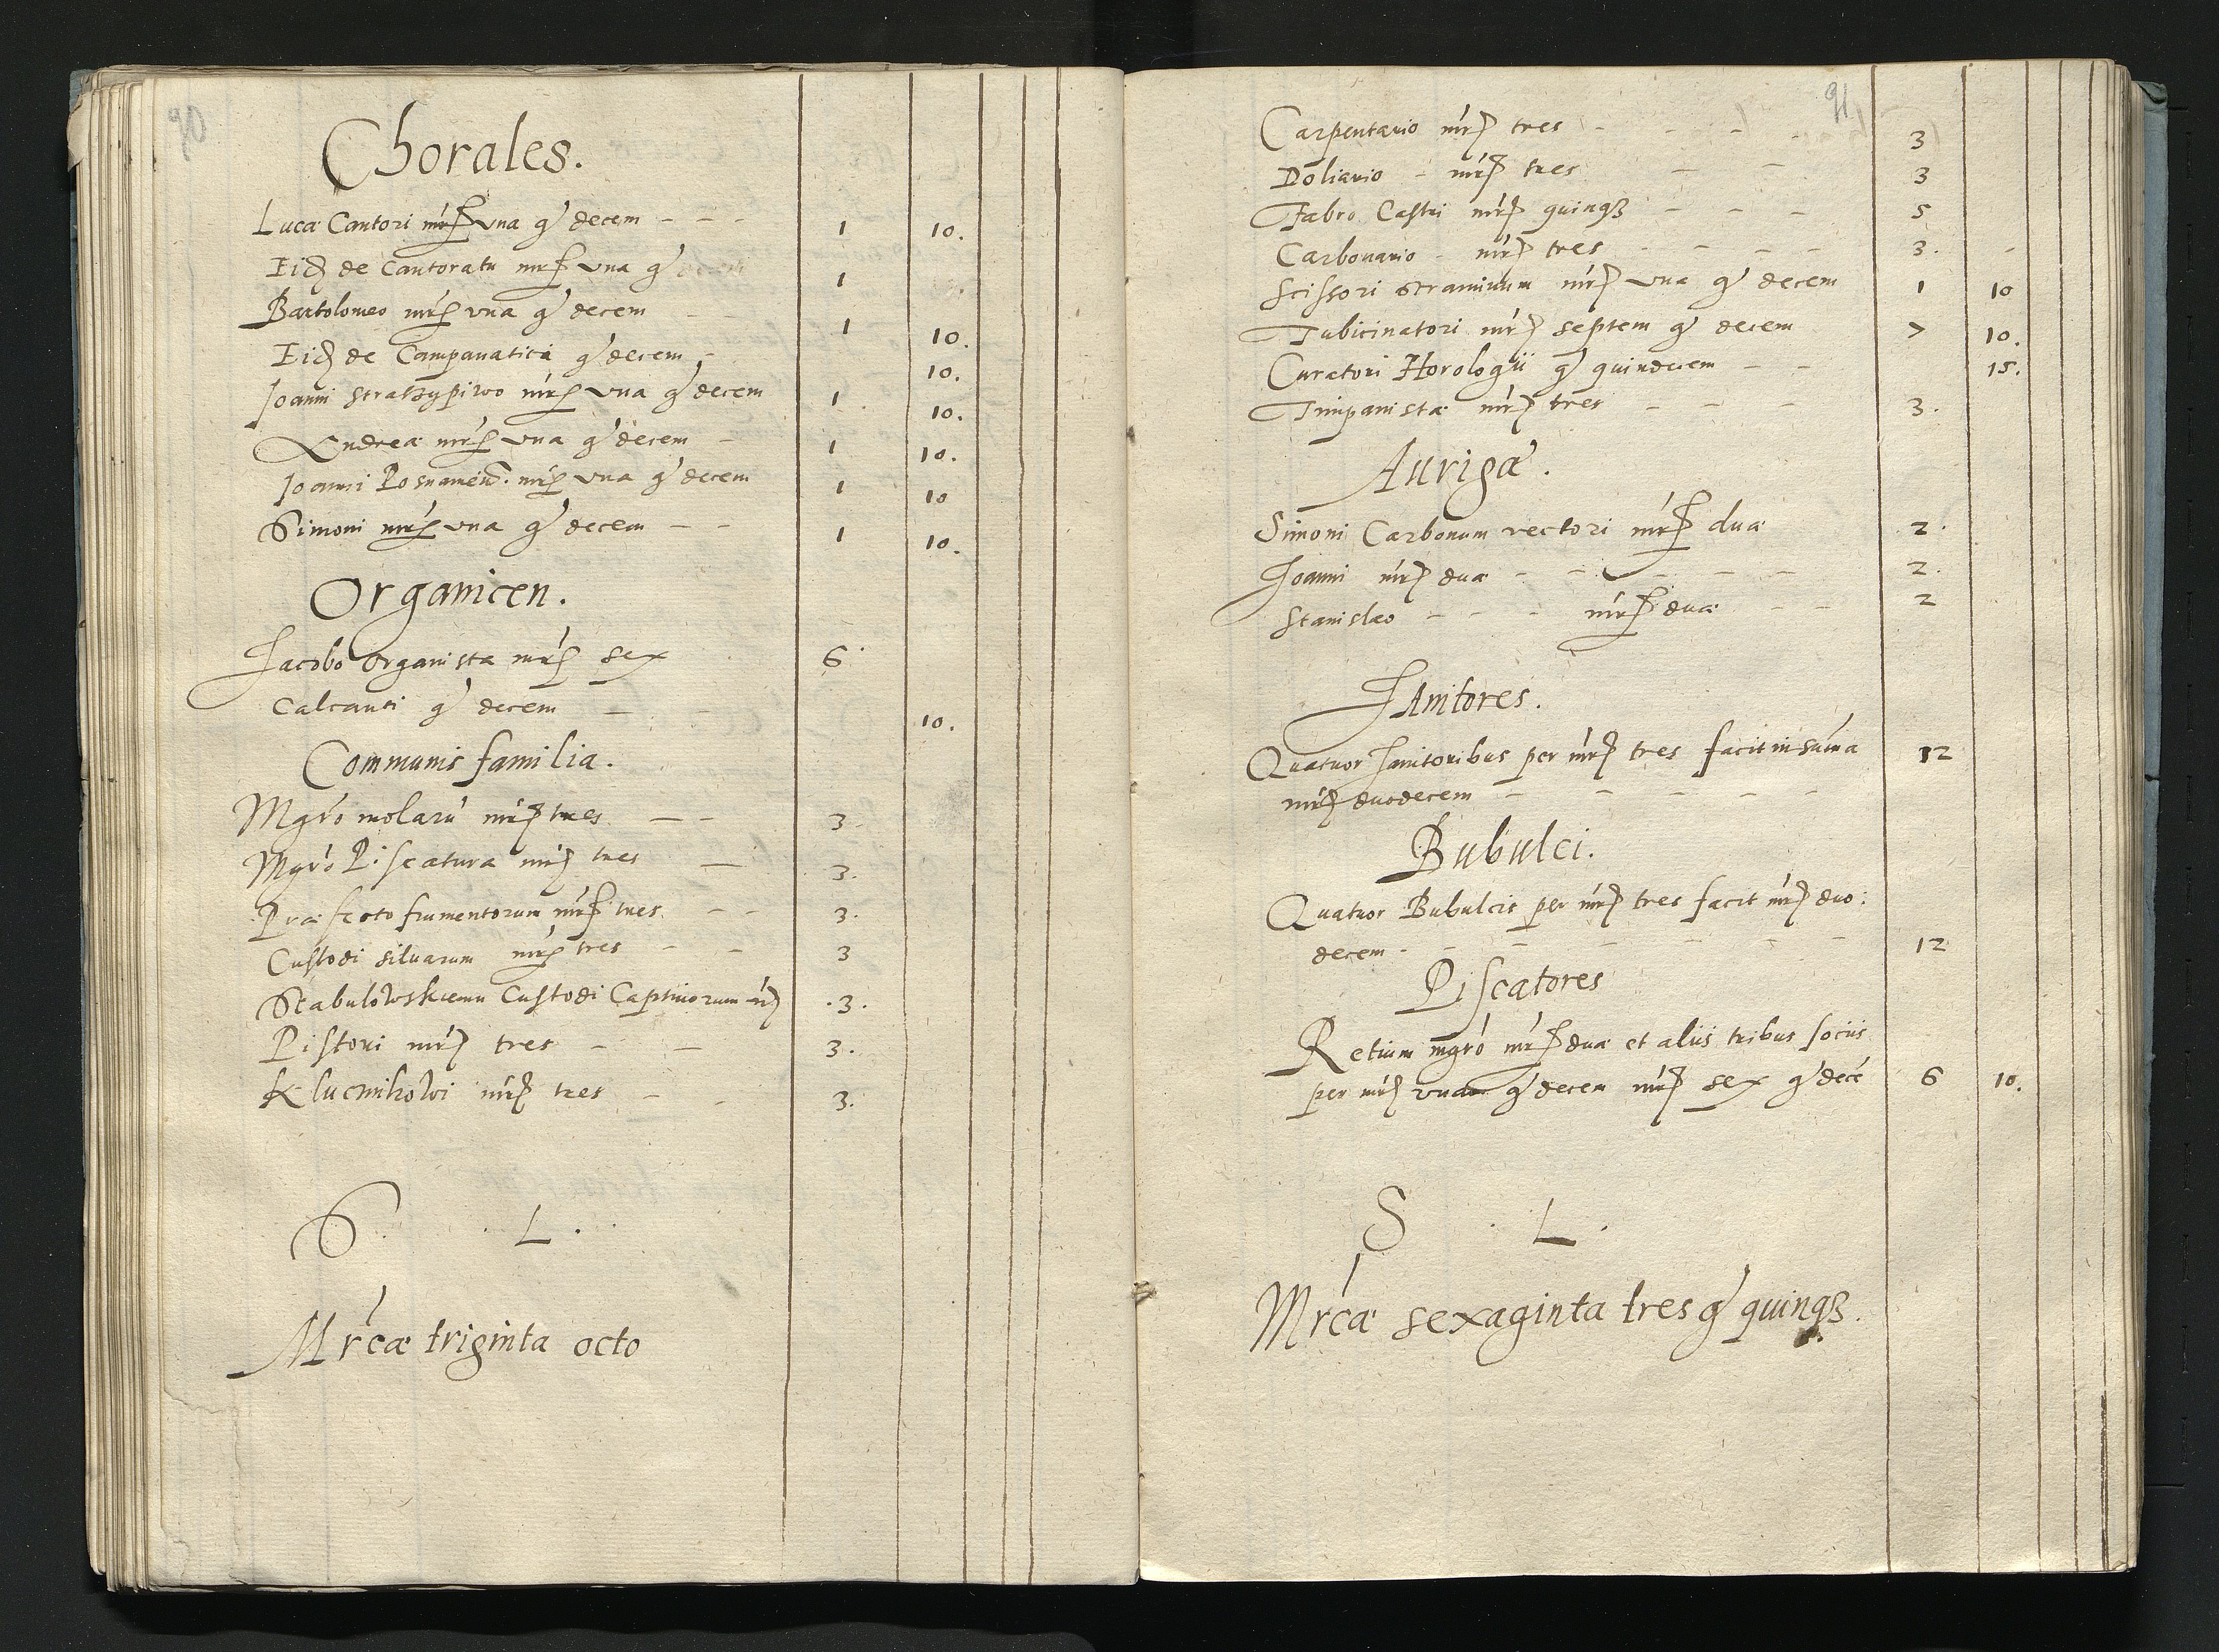 90
Chorales.
Lucæ Cantori mrcȩ una gr decem - - - 1 10.
Eidē de Cantoratu mrcȩ una gr 1
Bartolomeo mrcȩ vna gr decem 1 10.
Eidē de Campanatica gr decem - 10.
Joanni Straszypiwo mrcȩ vna gr decem 1 10.
Andreæ mrcȩ vna gr decem - 1 10.
Joanni Posnanień. mrcȩ vna gr decem 1 10
Simoni mrcȩ vna gr decem - - 1 10.
Organicen.
Jacobo organistæ mrcȩ sex 6
Calcanti gr decem - - 10.
Communis familia.
Mgrō molarū mrcȩ tres - - 3
Mgrō Piscaturæ mrcȩ tres - 3.
Præfecto frumentorum mrcȩ tres - - 3.
Custodi siluarum mrcȩ tres - - 3
Stabulowskiemu Custodi Captiuorum mrcȩ .3.
Pistori mrcȩ tres - - 3.
Klucznikowi mrcȩ tres - - 3.
S. L.
Mrcæ triginta octo
91
Carpentario mrcȩ tres - - - - 3
Doliario - mrcȩ tres - - 3
Fabro Castri mrcȩ quinqȝ - - - 5
Carbonario - mrcȩ tres - - - - 3.
Scissori straminum mrcȩ vna gr decem 1 10
Tubicinatori mrcȩ septem gr decem 7 10.
Curatori Horologii gr quindecem - - 15.
Timpanistæ mrcȩ tres - - - 3.
Aurigæ.
Simoni Carbonum vectori mrcȩ duæ 2.
Joanni mrcȩ duæ - - - - - 2.
Stanislao - - - mrcȩ duæ - - 2
Janitores.
Quatuor Janitoribus per mrcȩ tres facit in sūma 12
mrcȩ duodecem - - - - -
Bubulci.
Quatuor Bubulcis per mrcȩ tres facit mrcȩ duo:
decem - - - - - - 12
Piscatores
Retium mgrō mrcȩ duæ et aliis tribus sociis
per mrcȩ vnam gr decem mrcȩ sex gr decē 6 10.
S. L.
Mrcæ sexaginta tres gr quinqȝ.